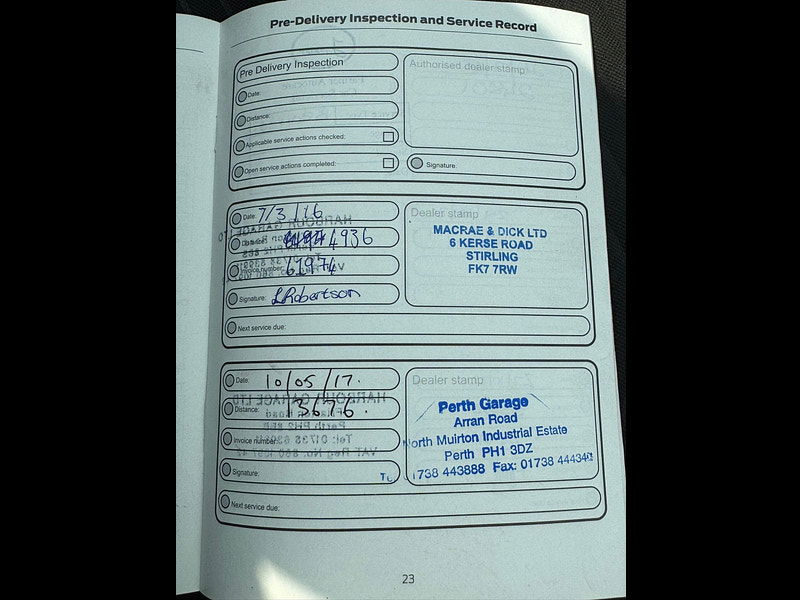 Pre-Delivery Inspection and Service Record
Pre Delivery Inspection
Date:
Distance:
Applicable service actions checked:
Open service actions completed:
Authorised dealer stamp
Signature:
Date: 7/3/16
Distance: 4936
Invoice number: 61974
Signature: LRobertson
Next service due:
Dealer stamp
MACRAE & DICK LTD
6 KERSE ROAD
STIRLING
FK7 7RW
Date: 10/05/17.
Distance: 3676.
Invoice number:
Signature:
Next service due:
Dealer stamp
Perth Garage
Arran Road
North Muirton Industrial Estate
Perth PH1 3DZ
1738 443888 Fax: 01738 444340
23